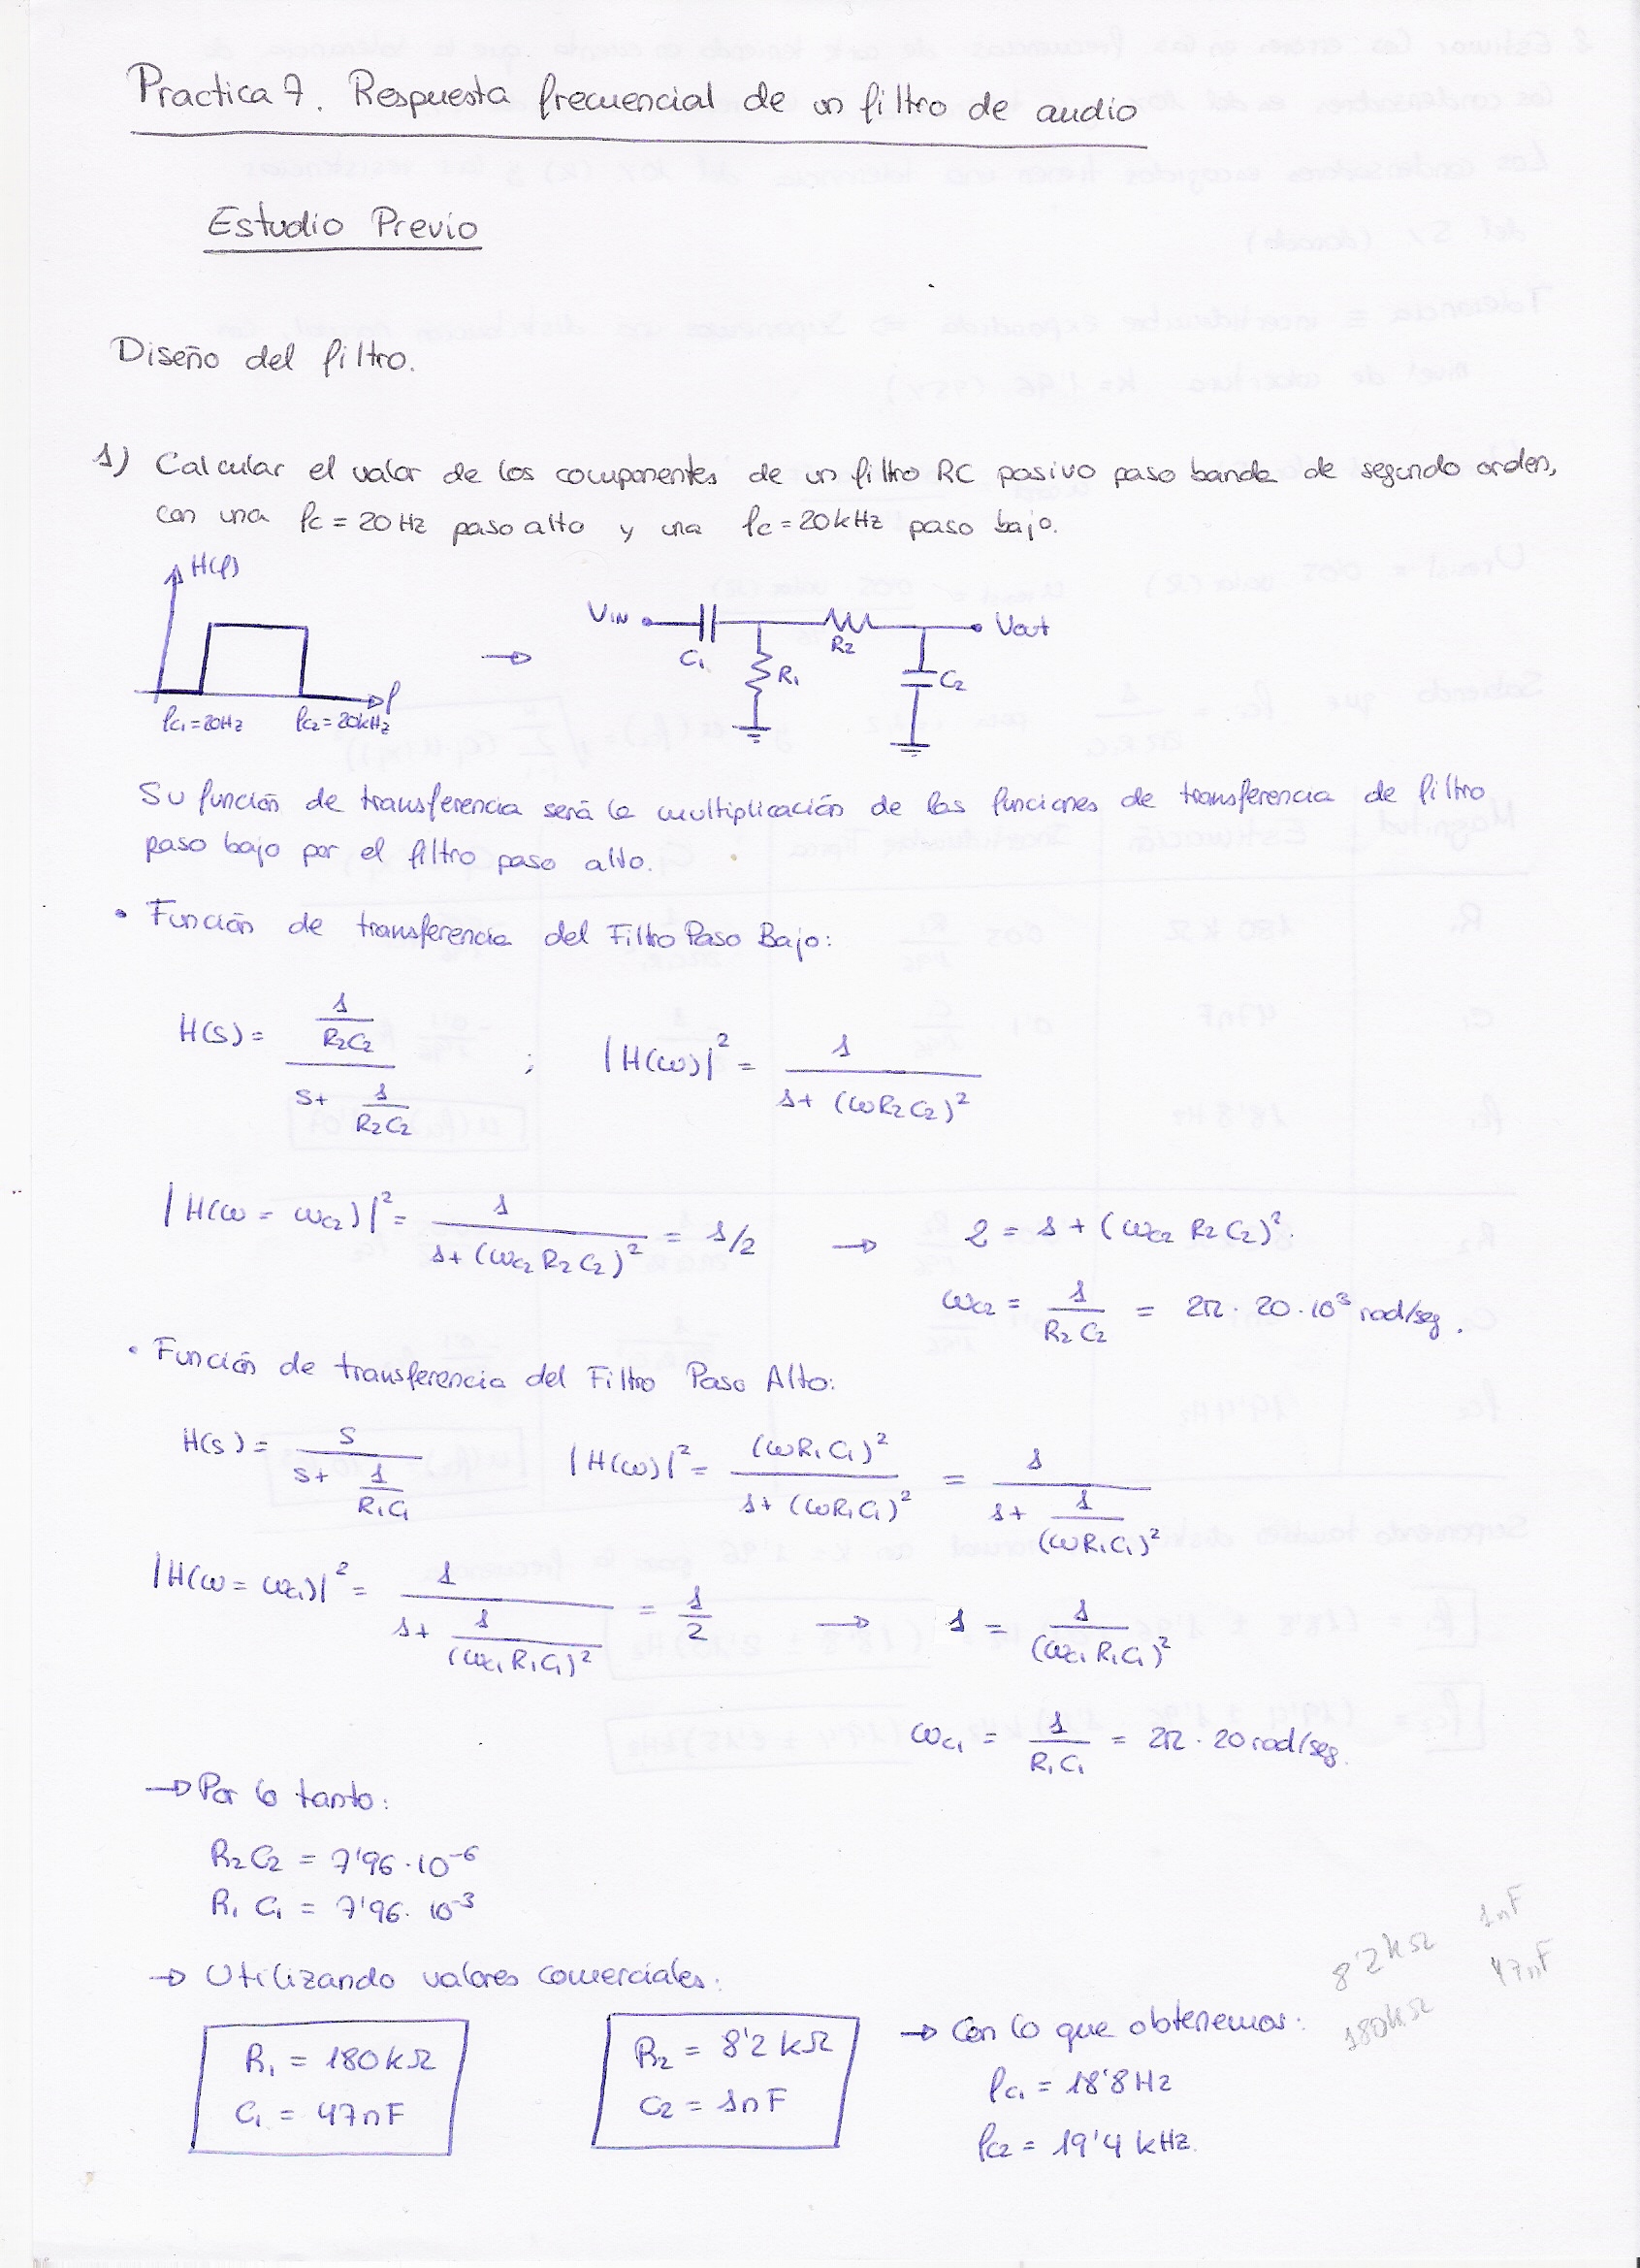 Practica 7. Respuesta frecuencial de un filtro de audio
Estudio Previo
Diseño del filtro.
1) Calcular el valor de los componentes de un filtro RC pasivo paso banda de segundo orden,
con una fc = 20 Hz paso alto y una fc = 20 kHz paso bajo.
H(f)
f
fc1 = 20Hz fc2 = 20kHz
→
VIN C1 R1 R2 C2 Vout
Su función de transferencia será la multiplicación de las funciones de transferencia de filtro
paso bajo por el filtro paso alto.
• Función de transferencia del Filtro Paso Bajo:
H(s) = (1/(R2C2)) / (s + 1/(R2C2)) ; |H(ω)|² = 1 / (1 + (ωR2C2)²)
|H(ω = ωc2)|² = 1 / (1 + (ωc2 R2 C2)²) = 1/2 → 2 = 1 + (ωc2 R2 C2)².
ωc2 = 1/(R2 C2) = 2π · 20 · 10³ rad/seg.
• Función de transferencia del Filtro Paso Alto:
H(s) = s / (s + 1/(R1C1)) |H(ω)|² = (ωR1C1)² / (1 + (ωR1C1)²) = 1 / (1 + 1/(ωR1C1)²)
|H(ω = ωc1)|² = 1 / (1 + 1/(ωc1R1C1)²) = 1/2 → 1 = 1/(ωc1R1C1)²
ωc1 = 1/(R1C1) = 2π · 20 rad/seg.
→ Por lo tanto:
R2C2 = 7'96 · 10⁻⁶
R1 C1 = 7'96 · 10⁻³
→ Utilizando valores comerciales:
R1 = 180 kΩ
C1 = 47nF
R2 = 8'2 kΩ
C2 = 1nF
→ Con lo que obtenemos:
fc1 = 18'8 Hz
fc2 = 19'4 kHz.
8'2 kΩ 1nF
180kΩ 47nF